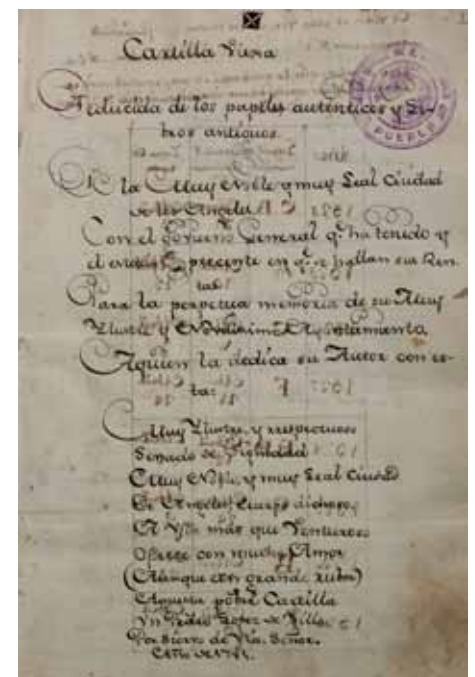 Cartilla Vieja
Deducida de los papeles autenticos y Li-
bros antiguos
De la Muy Noble y muy Leal Ciudad
de los Angeles
Con el Govierno General q.e ha tenido y
el presente en q.e se hallan sus Ren-
tas
Para la perpetua memoria de su Muy
Ylustre y Nobilisimo Ayuntamiento,
Aquien la dedica su Autor con es-
ta:
Muy Ylustre, y respectuoso
Senado de
Muy Noble, y muy Leal Ciudad
De Angeles Cuerpo dichoso,
A Vsia mas que Venturoso
Ofrece con mucho Amor
(Aunque con grande rubor)
Aquesta pobre Cartilla
Dn Pedro Lopez de Villa
Por Siervo de Vsia. Señor.
Año de
PUEBLA